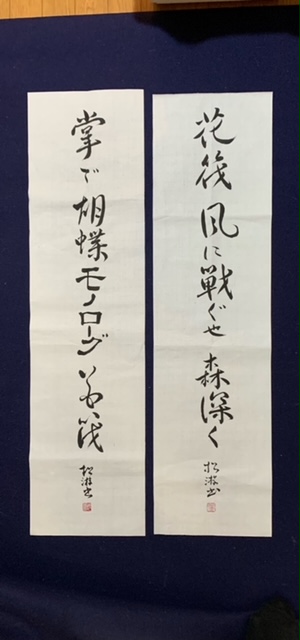 花筏風に戦ぐや森深く
掌で胡蝶モノローグ花筏